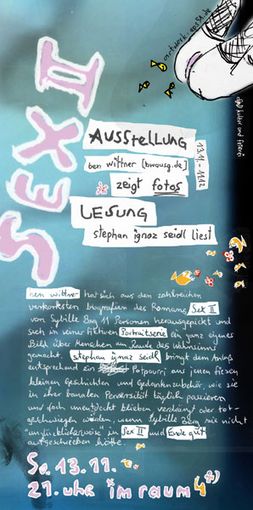 SEX II
AUSStELLUNG
13.11. - 11.12.
ben wittner [bureausg.de]
zeigt fotos
LESUNG
stephan ignaz seidl liest
ben wittner hat sich aus den zahlreichen
verkorksten biografien des Romans Sex II
von Sybille Berg 11 Personen herausgepickt und
sich in seiner fiktiven Portraitserie ein ganz eigenes
Bild über Menschen am Rande des Wahnsinns
gemacht. stephan ignaz seidl bringt dem Anlass
entsprechend ein Potpourri aus jenen fiesen
kleinen Geschichten und Gedankenzubehör, wie sie
in ihrer banalen Perversität täglich passieren
und doch unentdeckt bleiben, verdrängt oder tot-
geschwiegen würden, wenn Sybille Berg sie nicht
in Sex II und Ende gut
aufgeschrieben hätte.
So. 13.11.
21. uhr im raum 4